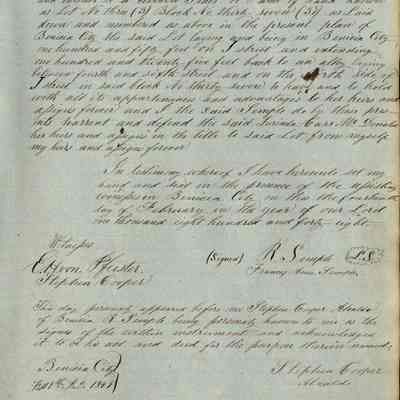 as Lot No three (3) Block No thirty seven (37) as laid
down and numbered as above in the present plan of
Benicia City the said Lot laying and being in Benicia City
one hundred and fifty feet on I street and extending
one hundred and twenty five feet back to an alley laying
between fourth and sixth street and on the North side of
I street in said block No thirty seven to have and to hold
with all its appurtenances and advantages to her heirs and
assigns forever and I the said Semple do by these pres-
ents warrant and defend the said Lucinda Carr McDonald
her heirs and assigns in the title to said Lot from myself
my heirs and assigns forever
In testimony whereof I have hereunto set my
hand and seal in the presence of the
witnesses in Benicia City on this the fourteenth
day of February in the year of our Lord
one thousand eight hundred and forty eight
Witnesses
(Signed) R. Semple L.S.
E. H. Von Pfister
Stephen Cooper
Frances Ann Semple
This day personally appeared before me Stephen Cooper Alcalde
of Benicia R Semple being personally known to me as the
signer of the within instrument and acknowledged
it to be his act and deed for the purpose therein named
Benicia City
Stephen Cooper
Alcalde